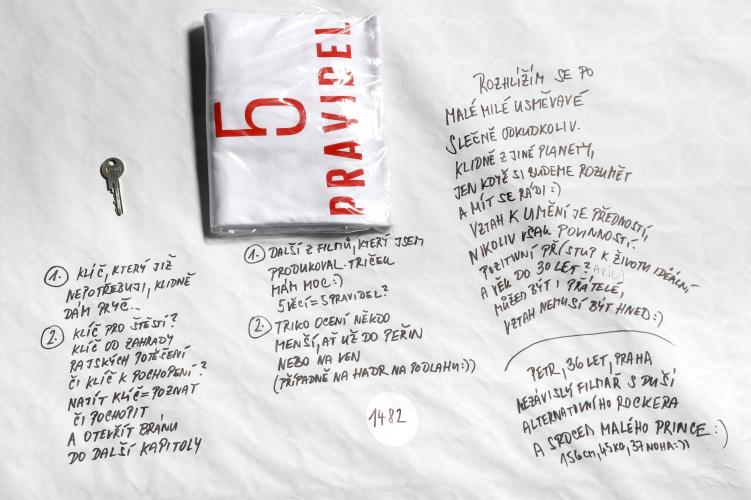 5
PRAVIDEL
1. KLÍČ, KTERÝ JIŽ
NEPOTŘEBUJI, KLIDNĚ
DÁM PRYČ...
2. KLÍČ PRO ŠTĚSTÍ?
KLÍČ OD ZAHRADY
RAJSKÝCH POTĚŠENÍ
ČI KLÍČ K POCHOPENÍ?
NAJÍT KLÍČ=POZNAT
ČI POCHOPIT
A OTEVŘÍT BRÁNU
DO DALŠÍ KAPITOLY
1. DALŠÍ Z FILMŮ, KTERÝ JSEM
PRODUKOVAL. TRIČEK
MÁM MOC:)
5 VĚCÍ=5 PRAVIDEL?
2. TRIKO OCENÍ NĚKDO
MENŠÍ, AŤ UŽ DO PEŘIN
NEBO NA VEN
(PŘÍPADNĚ NA HADR NA PODLAHU:))
1482
ROZHLÍŽÍM SE PO
MALÉ MILÉ USMĚVAVÉ
SLEČNĚ ODKUDKOLIV.
KLIDNĚ Z JINÉ PLANETY,
JEN KDYŽ SI BUDEME ROZUMĚT
A MÍT SE RÁDI:)
VZTAH K UMĚNÍ JE PŘEDNOSTÍ,
NIKOLIV VŠAK POVINNOSTÍ.
POZITIVNÍ PŘÍSTUP K ŽIVOTU IDEÁLNÍ,
A VĚK DO 30 LET?
MŮŽEM BÝT I PŘÁTELÉ,
VZTAH NEMUSÍ BÝT HNED:)
PETR, 36 LET, PRAHA
NEZÁVISLÝ FILMAŘ S DUŠÍ
ALTERNATIVNÍHO ROCKERA
A SRDCEM MALÉHO PRINCE:)
156CM, 45KG, 37 NOHA:))